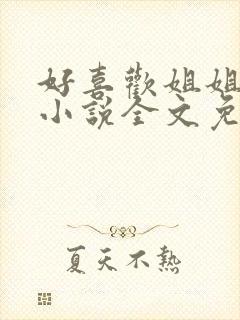 好喜歡姐姐
小說全文免
夏天不熱